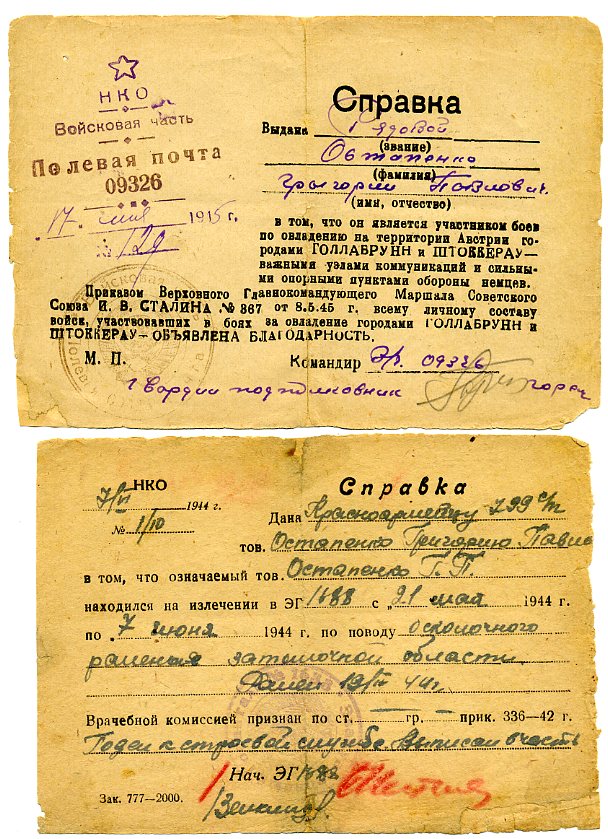 НКО
Войсковая часть
Полевая почта
09326
17. мая 1945 г.
№ 129
Справка
Выдана Рядовой
(звание)
Остапенко
(фамилия)
Григорий Павлович
(имя, отчество)
в том, что он является участником боев
по овладению на территрии Австрии го-
родами ГОЛЛАБРУНН и ШТОККЕРАУ—
важными узлами коммуникаций и сильны-
ми опорными пунктами обороны немцев.
Приказом Верховного Главнокомандующего Маршала Советского
Союза И. В. СТАЛИНА № 367 от 8.5.45 г. всему личному составу
войск, участвовавших в боях за овладение городами ГОЛЛАБРУНН и
ШТОККЕРАУ—ОБЪЯВЛЕНА БЛАГОДАРНОСТЬ.
М. П.
Командир 09326
гвардии подполковник
НКО
1944 г.
№ 1/10
Справка
Дана Красноармейцу 799 с/п
тов. Остапенко Григорию Павло
в том, что означаемый тов. Остапенко Г.П.
находился на излечении в ЭГ 1688 с 21 мая 1944 г.
по 7 июня 1944 г. по поводу осколочного
ранения затылочной области
Ранен 44 г.
Врачебной комиссией признан по ст. гр. прик. 336—42 г.
Годен к строевой службе Выписан в часть
Нач. ЭГ 1688
Зак. 777—2000.